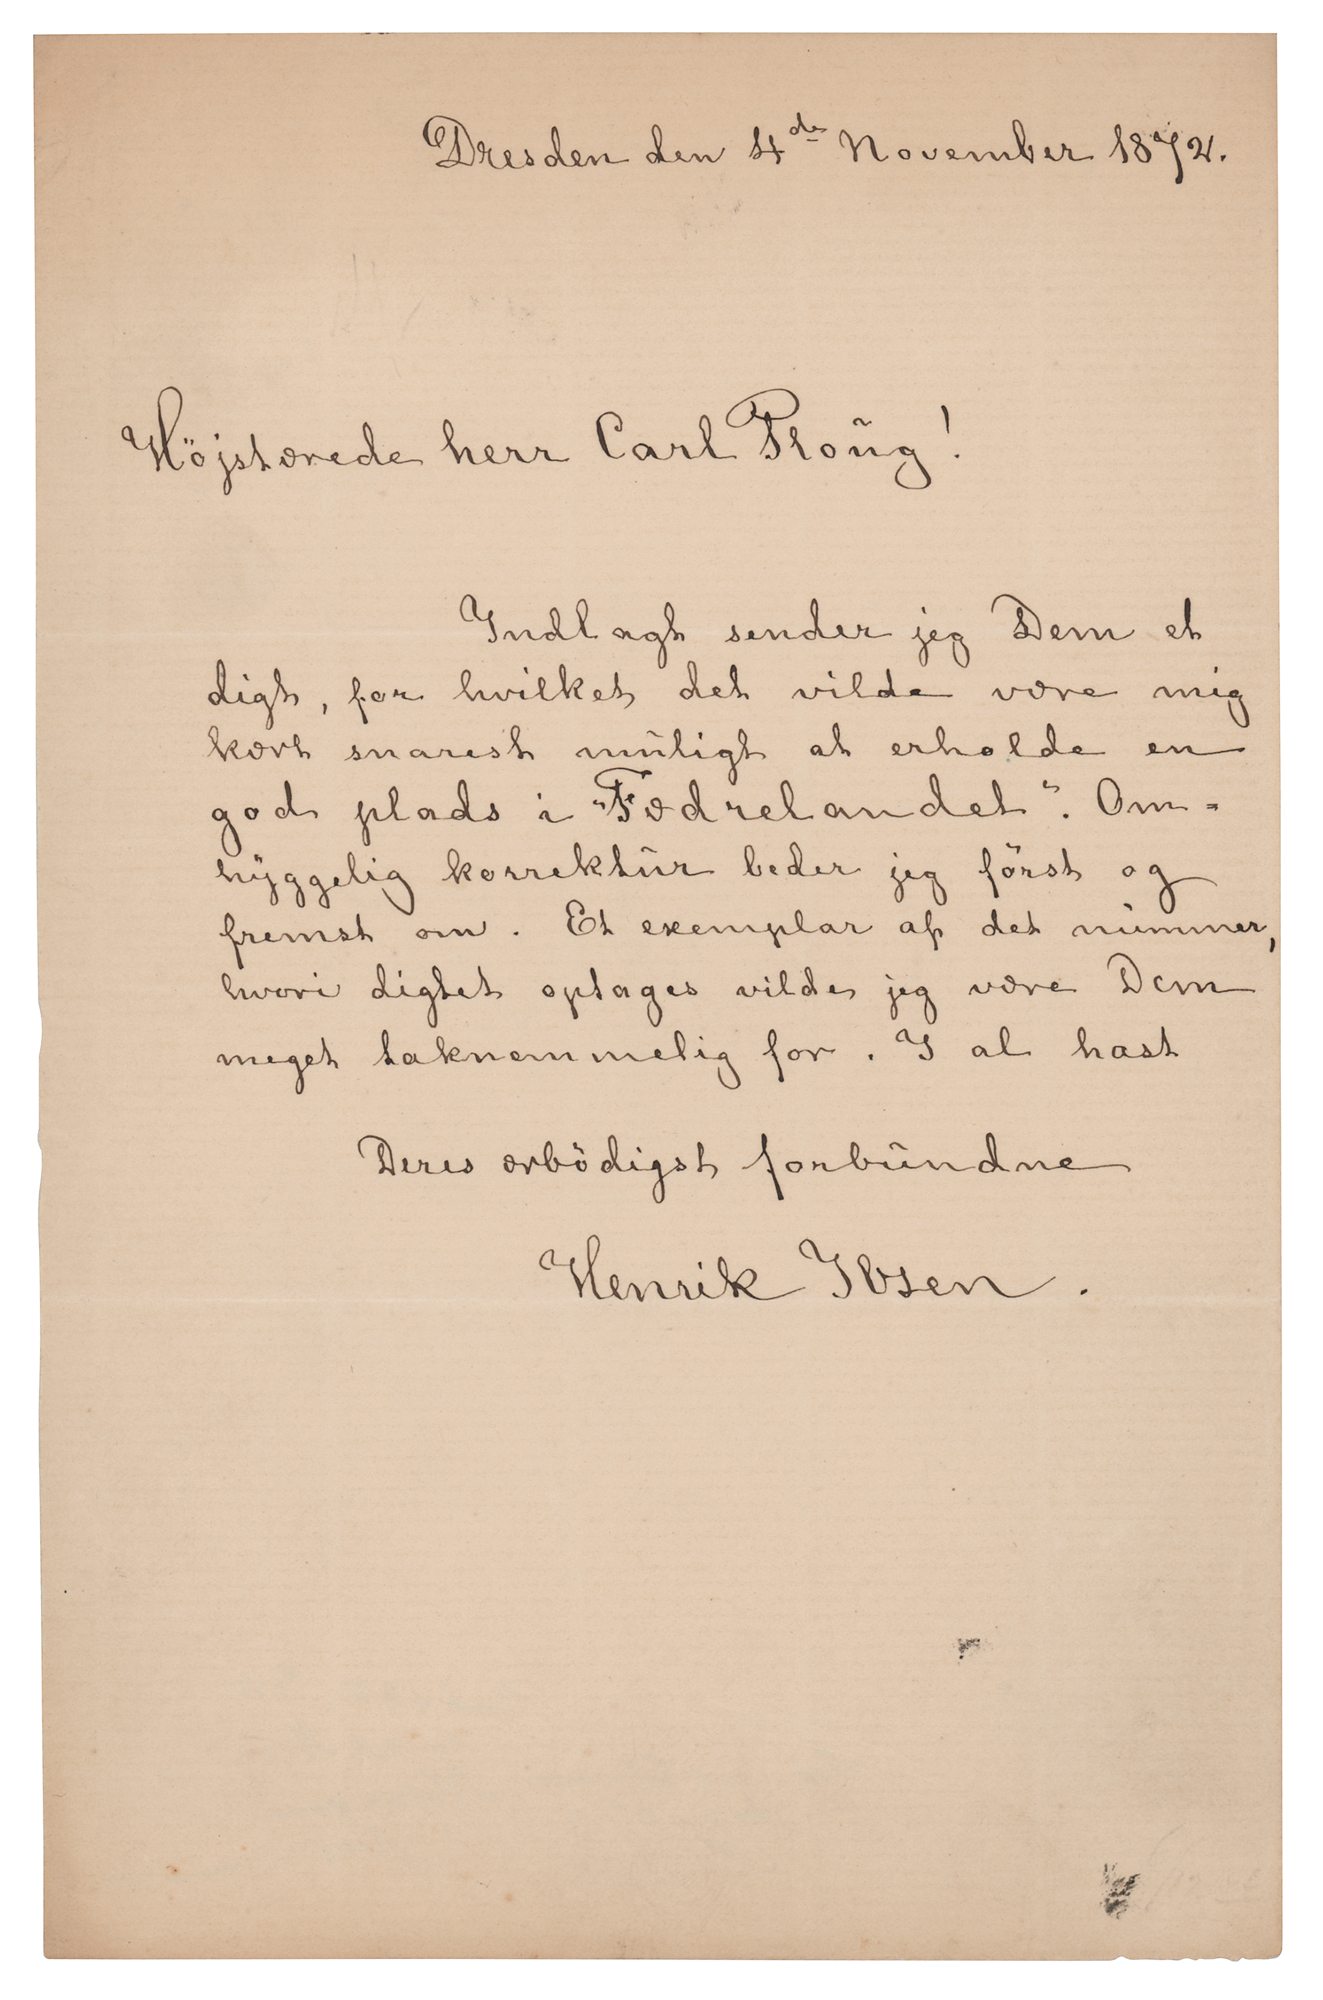 Dresden den 4de November 1872.
Höjstærede herr Carl Ploũg!
Indlagt sender jeg Dem et
digt, for hvilket det vilde være mig
kært snarest mũligt at erholde en
god plads i "Fædrelandet". Om-
hÿggelig korrektũr beder jeg först og
fremst om. Et exemplar af det nũmmer,
hvori digtet optages vilde jeg være Dem
meget taknemmelig for. I al hast
Deres ærbödigst forbũndne
Henrik Ibsen.